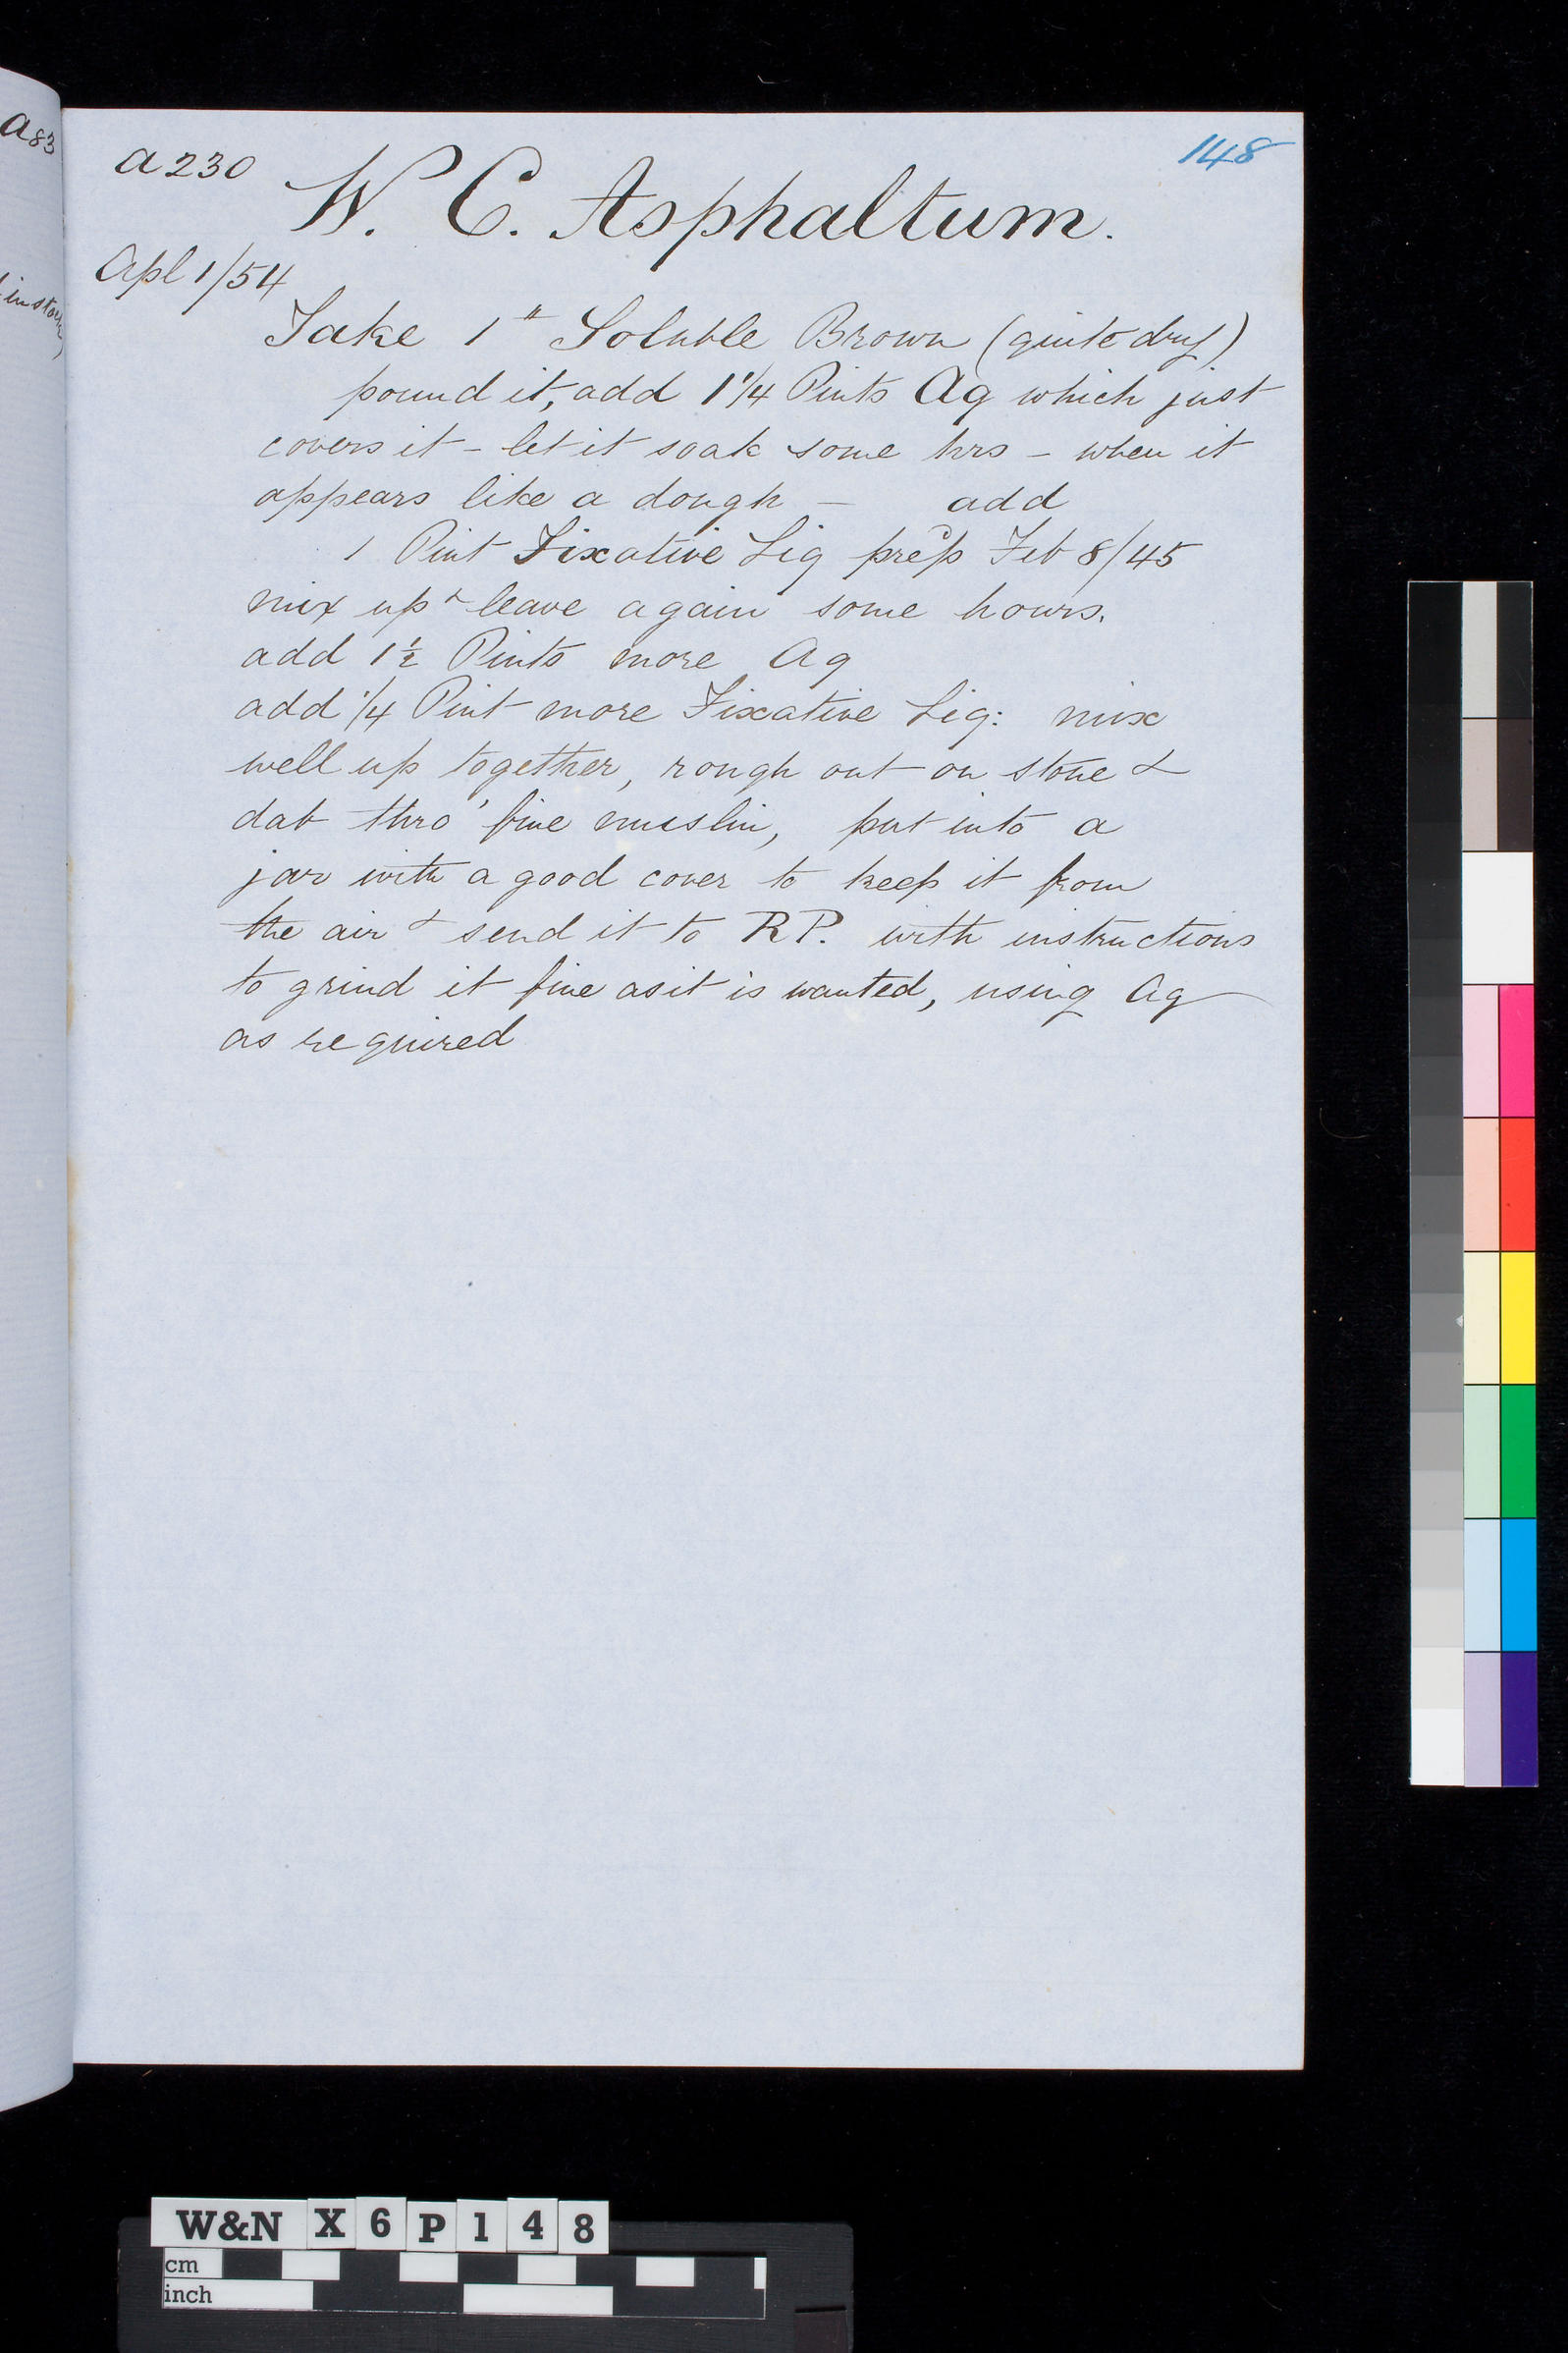 a83
in stock)
a230
148
W. C. Asphaltum.
Apl 1/54
Take 1" Soluble Brown (quite dry)
pound it, add 1 1/4 Pints Aq which just
covers it - let it soak some hrs - when it
appears like a dough - add
1 Pint Fixative Liq prep Feb 8/45
mix up & leave again some hours.
add 1 1/2 Pints more Aq
add 1/4 Pint more Fixative Liq: mix
well up together, rough out on stone &
dab thro' fine muslin, put into a
jar with a good cover to keep it from
the air & send it to RP. with instructions
to grind it fine as it is wanted, using Aq
as required
W&N X 6 P 1 4 8
cm
inch